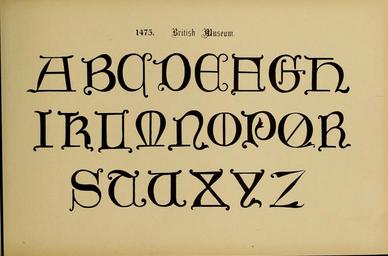 1475. British Museum.
ABCDEFGH
IKLMNOPQR
STUXYZ